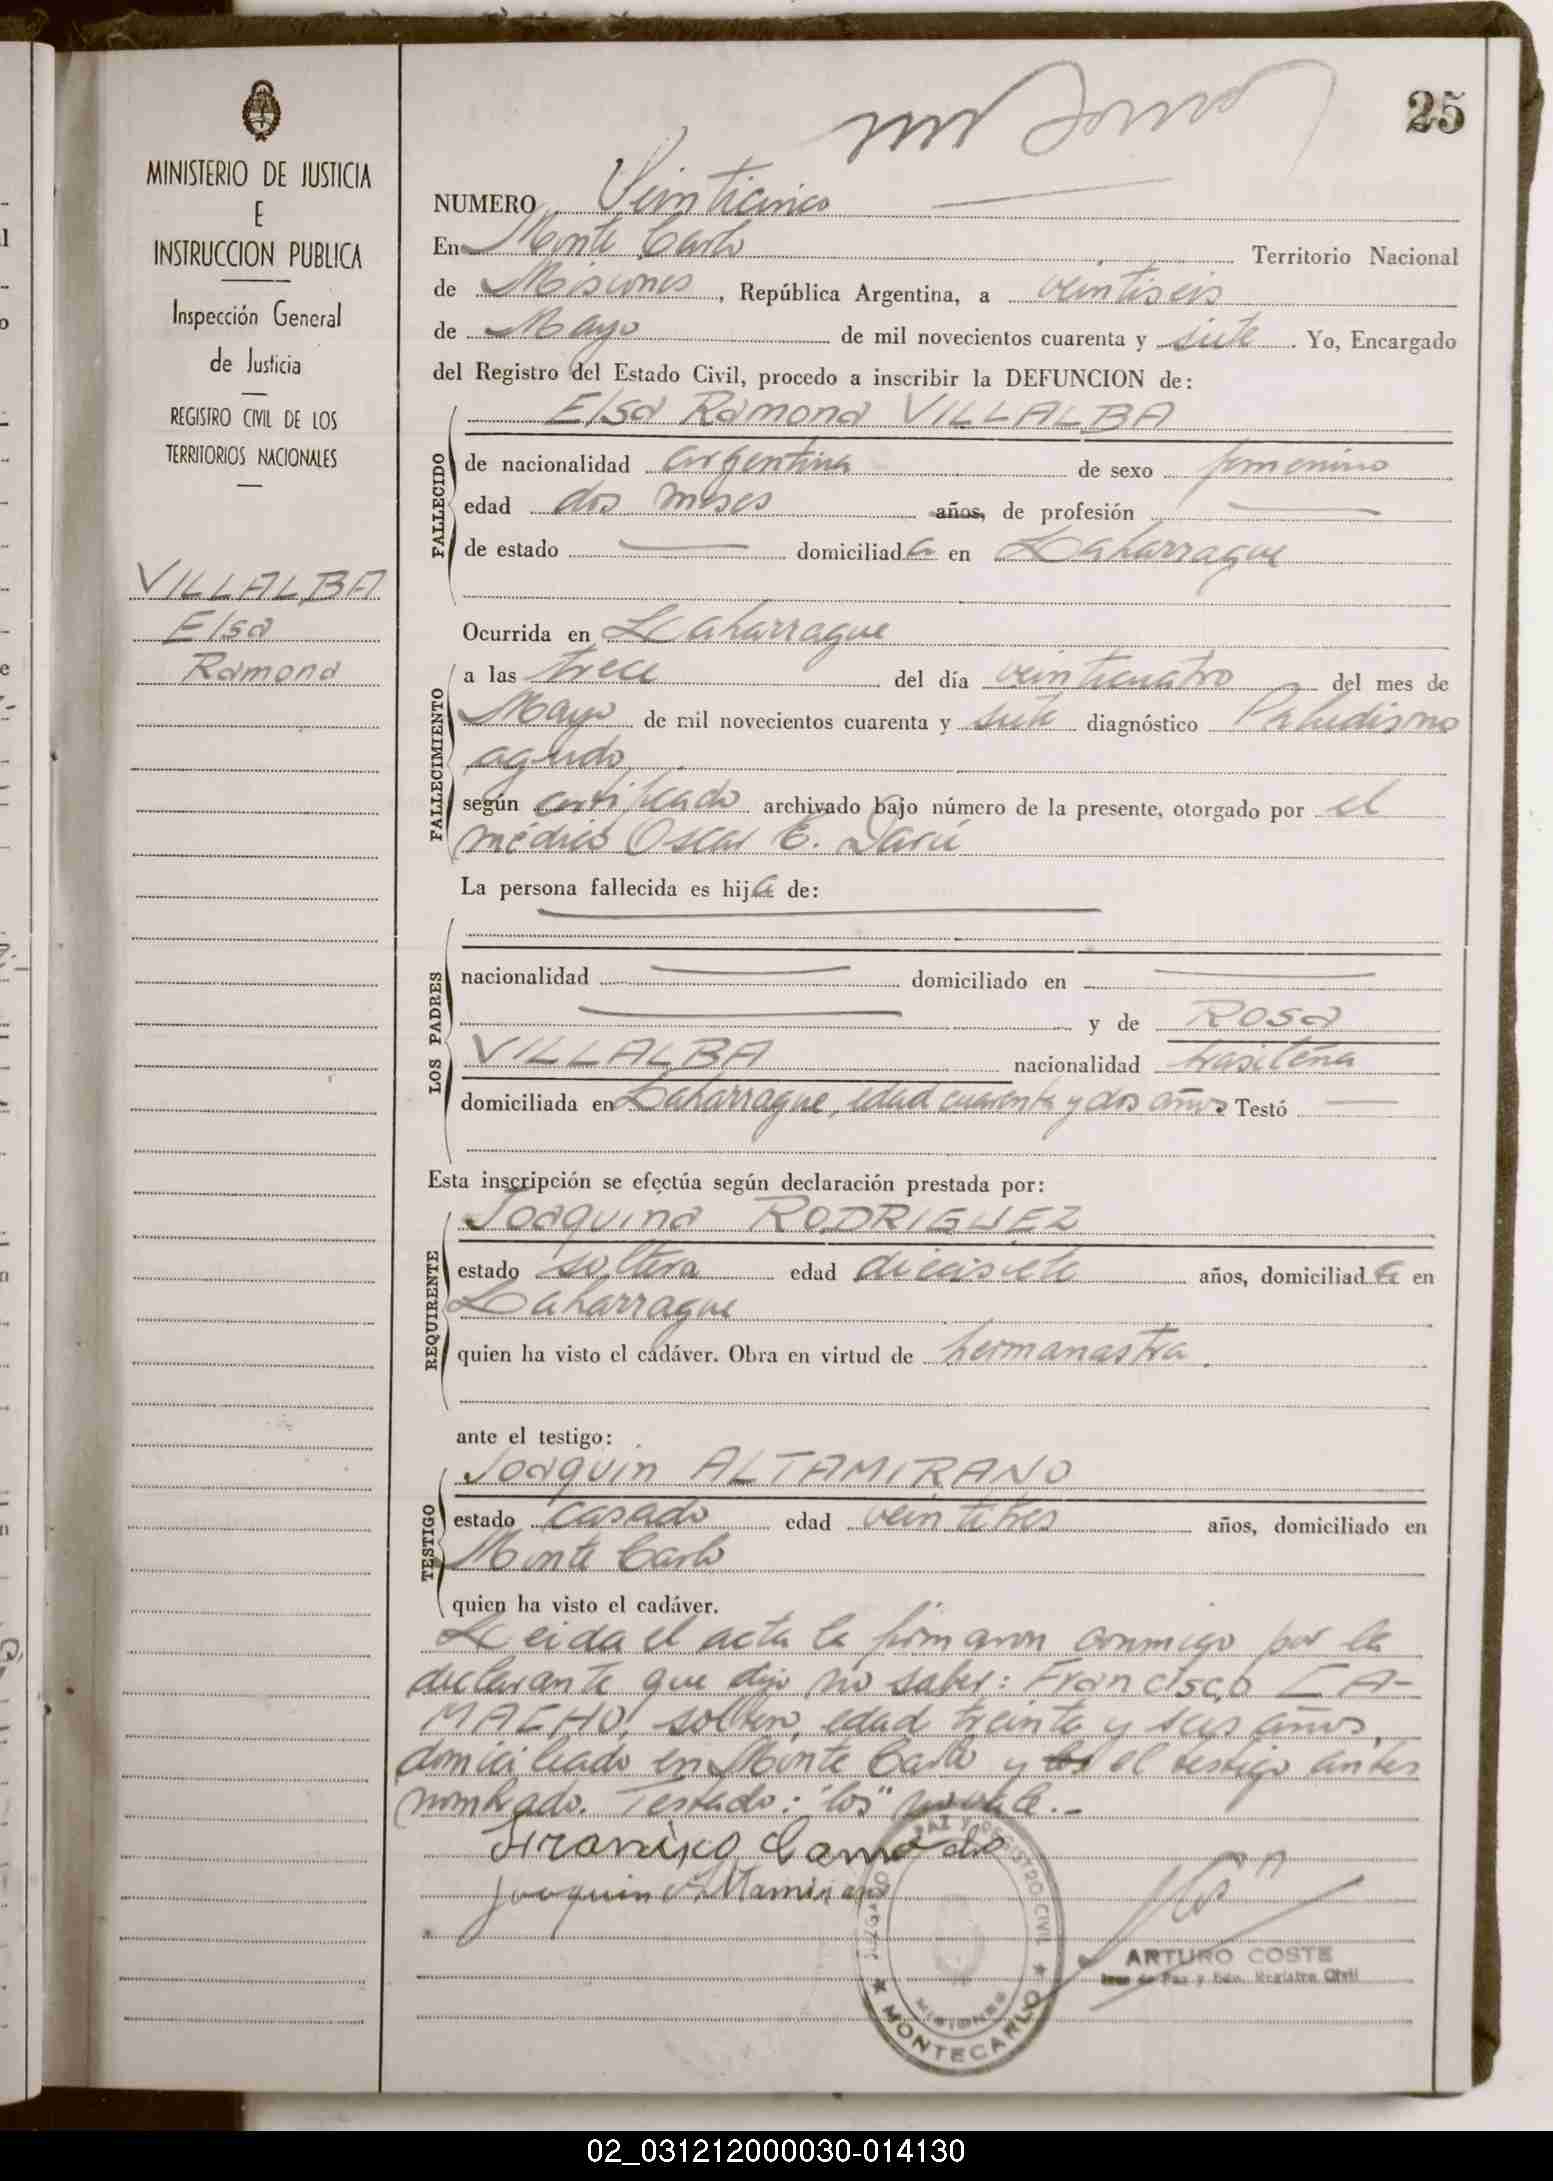 25
MINISTERIO DE JUSTICIA
E
INSTRUCCION PUBLICA
Inspección General
de Justicia
REGISTRO CIVIL DE LOS
TERRITORIOS NACIONALES
VILLALBA
Elsa
Ramona
NUMERO Veinticinco
En Monte Carlo Territorio Nacional
de Misiones, República Argentina, a veintiseis
de Mayo de mil novecientos cuarenta y siete. Yo, Encargado
del Registro del Estado Civil, procedo a inscribir la DEFUNCION de:
FALLECIDO
Elsa Ramona VILLALBA
de nacionalidad argentina de sexo femenino
edad dos meses años, de profesión
de estado domiciliada en Laharrague
Ocurrida en Laharrague
FALLECIMIENTO
a las trece del día veinticuatro del mes de
Mayo de mil novecientos cuarenta y siete diagnóstico Paludismo
agudo
según certificado archivado bajo número de la presente, otorgado por el
médico Oscar E. Darú
La persona fallecida es hija de:
LOS PADRES
nacionalidad domiciliado en
y de Rosa
VILLALBA nacionalidad brasileña
domiciliada en Laharrague, edad cuarenta y dos años Testó
Esta inscripción se efectúa según declaración prestada por:
REQUIRENTE
Joaquina RODRIGUEZ
estado soltera edad diecisiete años, domiciliada en
Laharrague
quien ha visto el cadáver. Obra en virtud de hermanastra.
ante el testigo:
TESTIGO
Joaquin ALTAMIRANO
estado casado edad veintitres años, domiciliado en
Monte Carlo
quien ha visto el cadáver.
Leida el acta la firmaron conmigo por la
declarante que dijo no saber: Francisco CA-
MACHO, soltero, edad treinta y seis años,
domiciliado en Monte Carlo y los el testigo antes
nombrado. Testado: "los" no vale.-
Joaquin Altamirano
PAZ Y REGISTRO CIVIL
MISIONES
★ MONTECARLO ★
ARTURO COSTE
Juez de Paz y Enc. Registro Civil
02_031212000030-014130